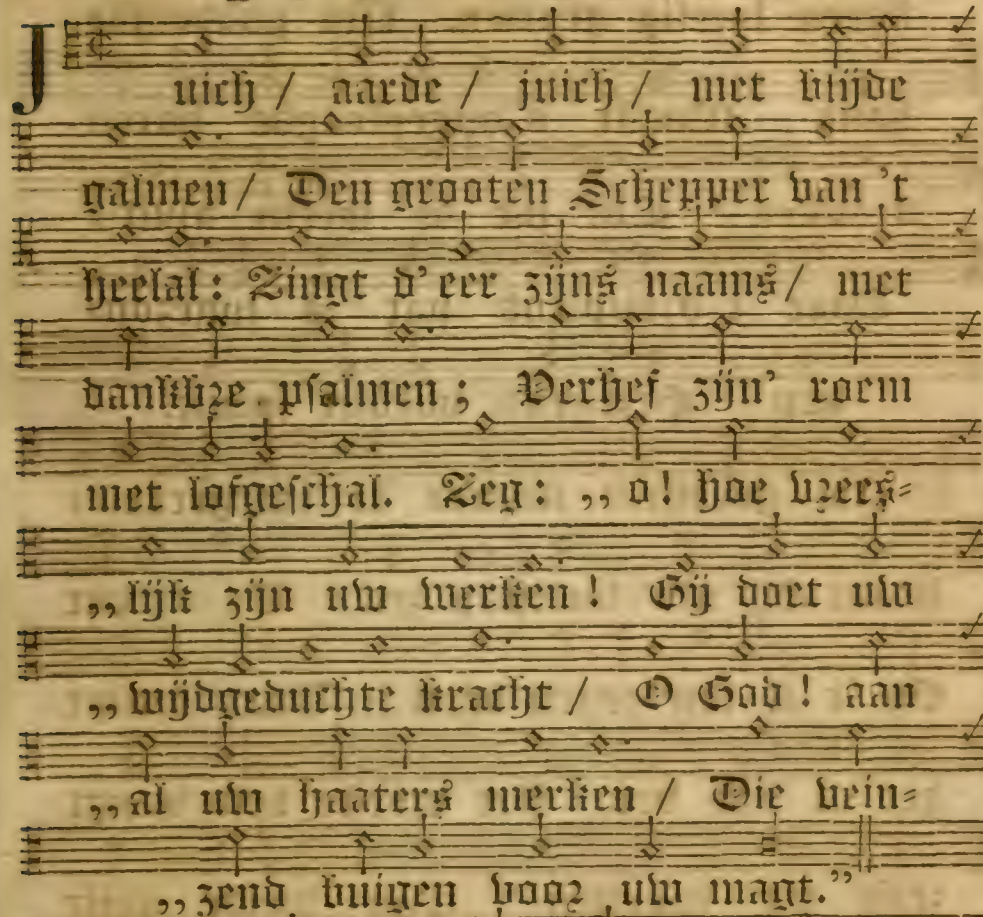 Juich / aarde / juich / met blijde
galmen / Den grooten Schepper van 't
heelal: Zingt d'eer zijns naams / met
dankbre psalmen; Verhef zijn' roem
met lofgeschal. Zeg: „ o! hoe vrees-
„lijk zijn uw werken! Gij doet uw
„wijdgeduchte kracht / O God! aan
„al uw haaters merken / Die vein-
„zend buigen voor uw magt.”